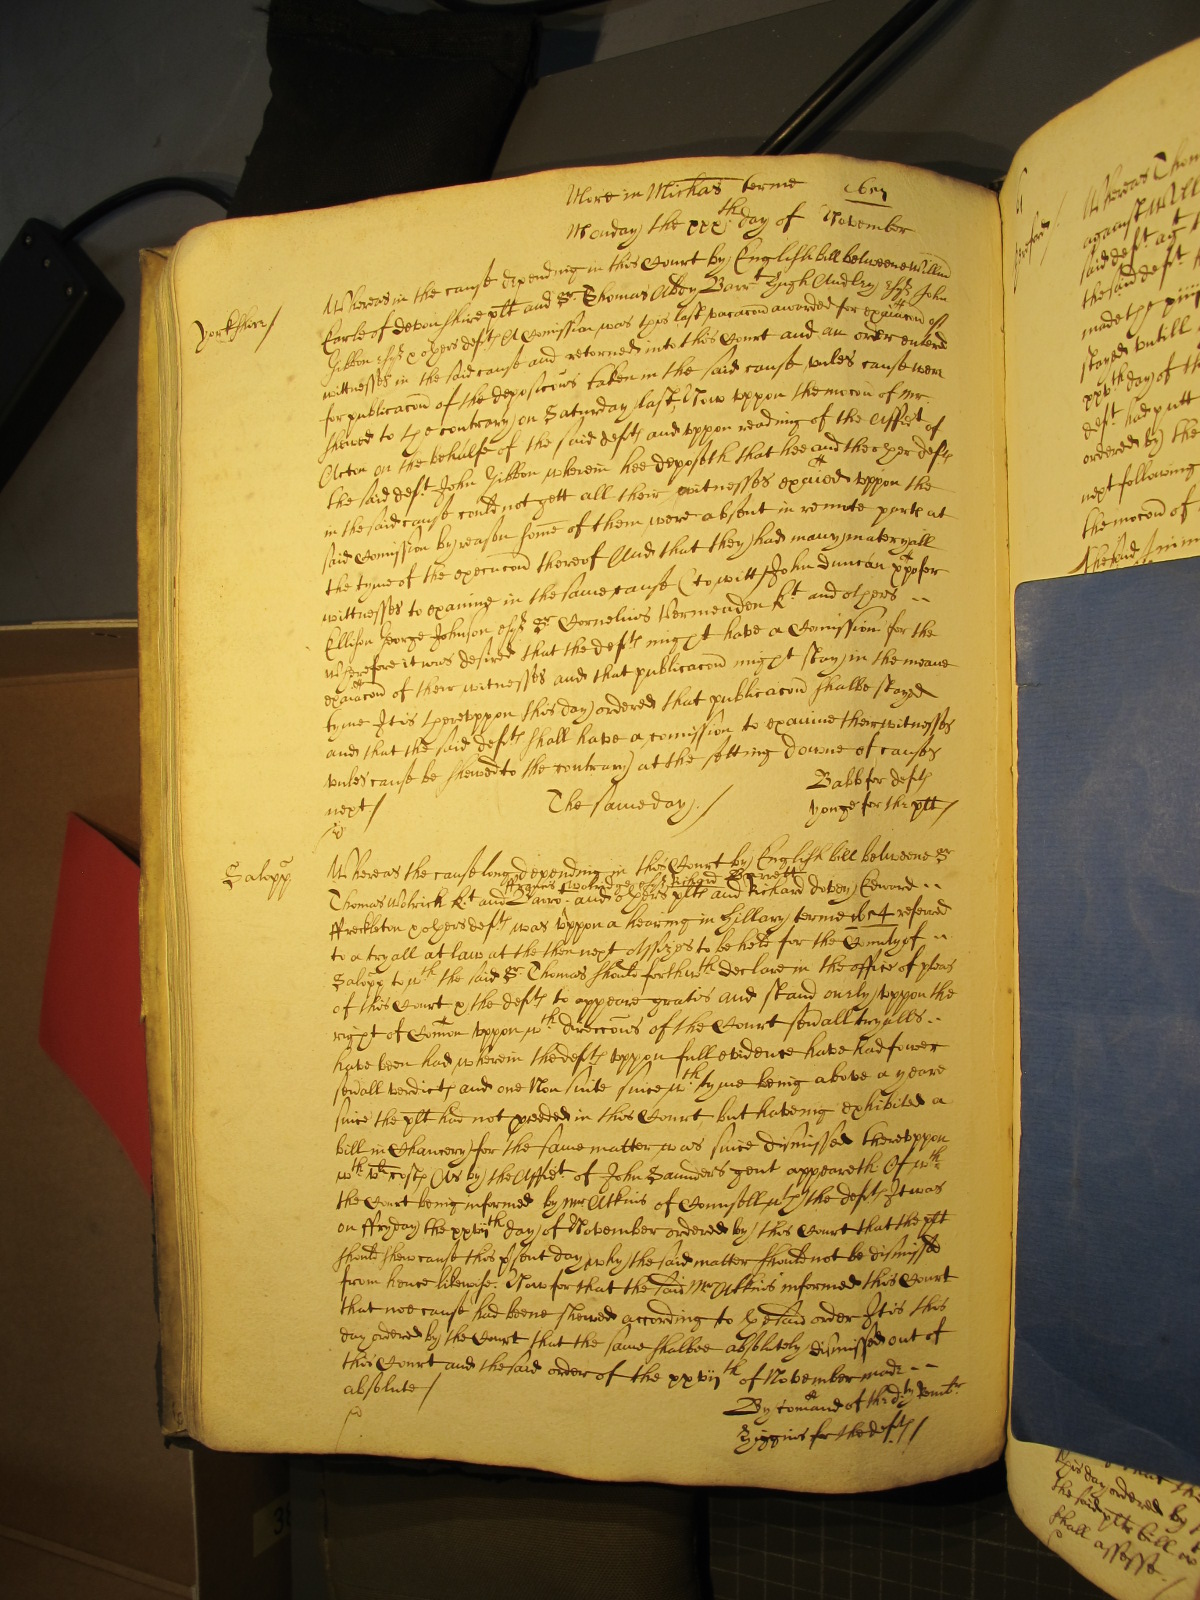 More in Michas terme 1657
Monday the xxxth day of November
Yorkshire /
Whereas in the cause depending in this Court by English bill betweene William
Earle of devonshire plt and Sr Thomas Abdy Barrt Hugh Audley esqr John
Gibbon esqr & others defts A Comission was this last vacacon awarded for exaiacon of
wittnesses in the said cause and retorned into this Court and an order entred
for publicacon of the deposicons taken in the said cause vnles cause were
shewed to the contrary on Saturday last, Now vppon the mocon of mr.
Acton on the behalfe of the said defts and vppon reading of the affidt of
the said deft John Gibbon wherein hee deposeth that hee and the other defts
in the said cause could not gett all their witnesses exaied vppon the
said Comission by reason some of them were absent in remote parts at
the tyme of the execucon thereof And that they had many materyall
wittnesses to examine in the same cause (to witt) John Duncan xpofer
Ellison George Johnson esqr Sr Cornelius Vermeaden Kt and others --
Wherefore it was desired that the defts might have a Comission for the
exaiacon of their witnesses and that publicacon might stay in the meane
tyme It is therevppon this day ordered that publicacon shalbe stayed
and that the said defts shall have a comission to examine their witnesses
vnles cause be shewed to the contrary at the setting downe of causes
next /
Babb for defts
Yonge for the plt /
The same day. /
Salopp
Whereas the cause long depending in this Court by English bill betweene Sr
Thomas Wolrich Kt and Barrt and others plts and Richard dovey Edward --
ffreckleton & others defts was vppon a hearing in Hillary terme 1654 referred
to a tryall at law at the then next Assizes to be held for the County of --
Salopp to wth the said Sr Thomas should forthwth declare in the office of pleas
of this Court & the defts to appeare gratis and stand onely vppon the
right of Comon vppon wth direccons of the Court seuall tryalls --
have been had wherein the defts vppon full evidence have had fower
seuall verdicts and one Non suite since wth tyme being above a yeare
since the plt had not pceeded in this Court, but haveing exhibited a
bill in Chancery for the same matter was since dismissed therevppon
wth costs As by the Affidt of John Saunders gent appeareth Of wth
the Court being informed by mr Atkins of Counsell wth the defts It was
on ffryday the xxvijth day of November ordered by this Court that the plt
should shew cause this psent day why the said matter should not be dismissed
from hence likewise. Now for that the said Mr Atkins informed this Court
that noe cause had beene shewed according to the said order It is this
day ordered by the Court that the same shalbee absolutely dismissed out of
this Court and the said order of the xxvijth of November made --
absolute /
By comand of the
Higgins for the defts /